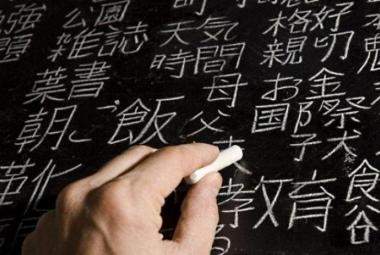 勉強 公園 天気 格好
雑誌 時間 親切 鬼
葉書 母 お金
朝ご飯 父 国際
子犬
革化 教育 食
る 谷